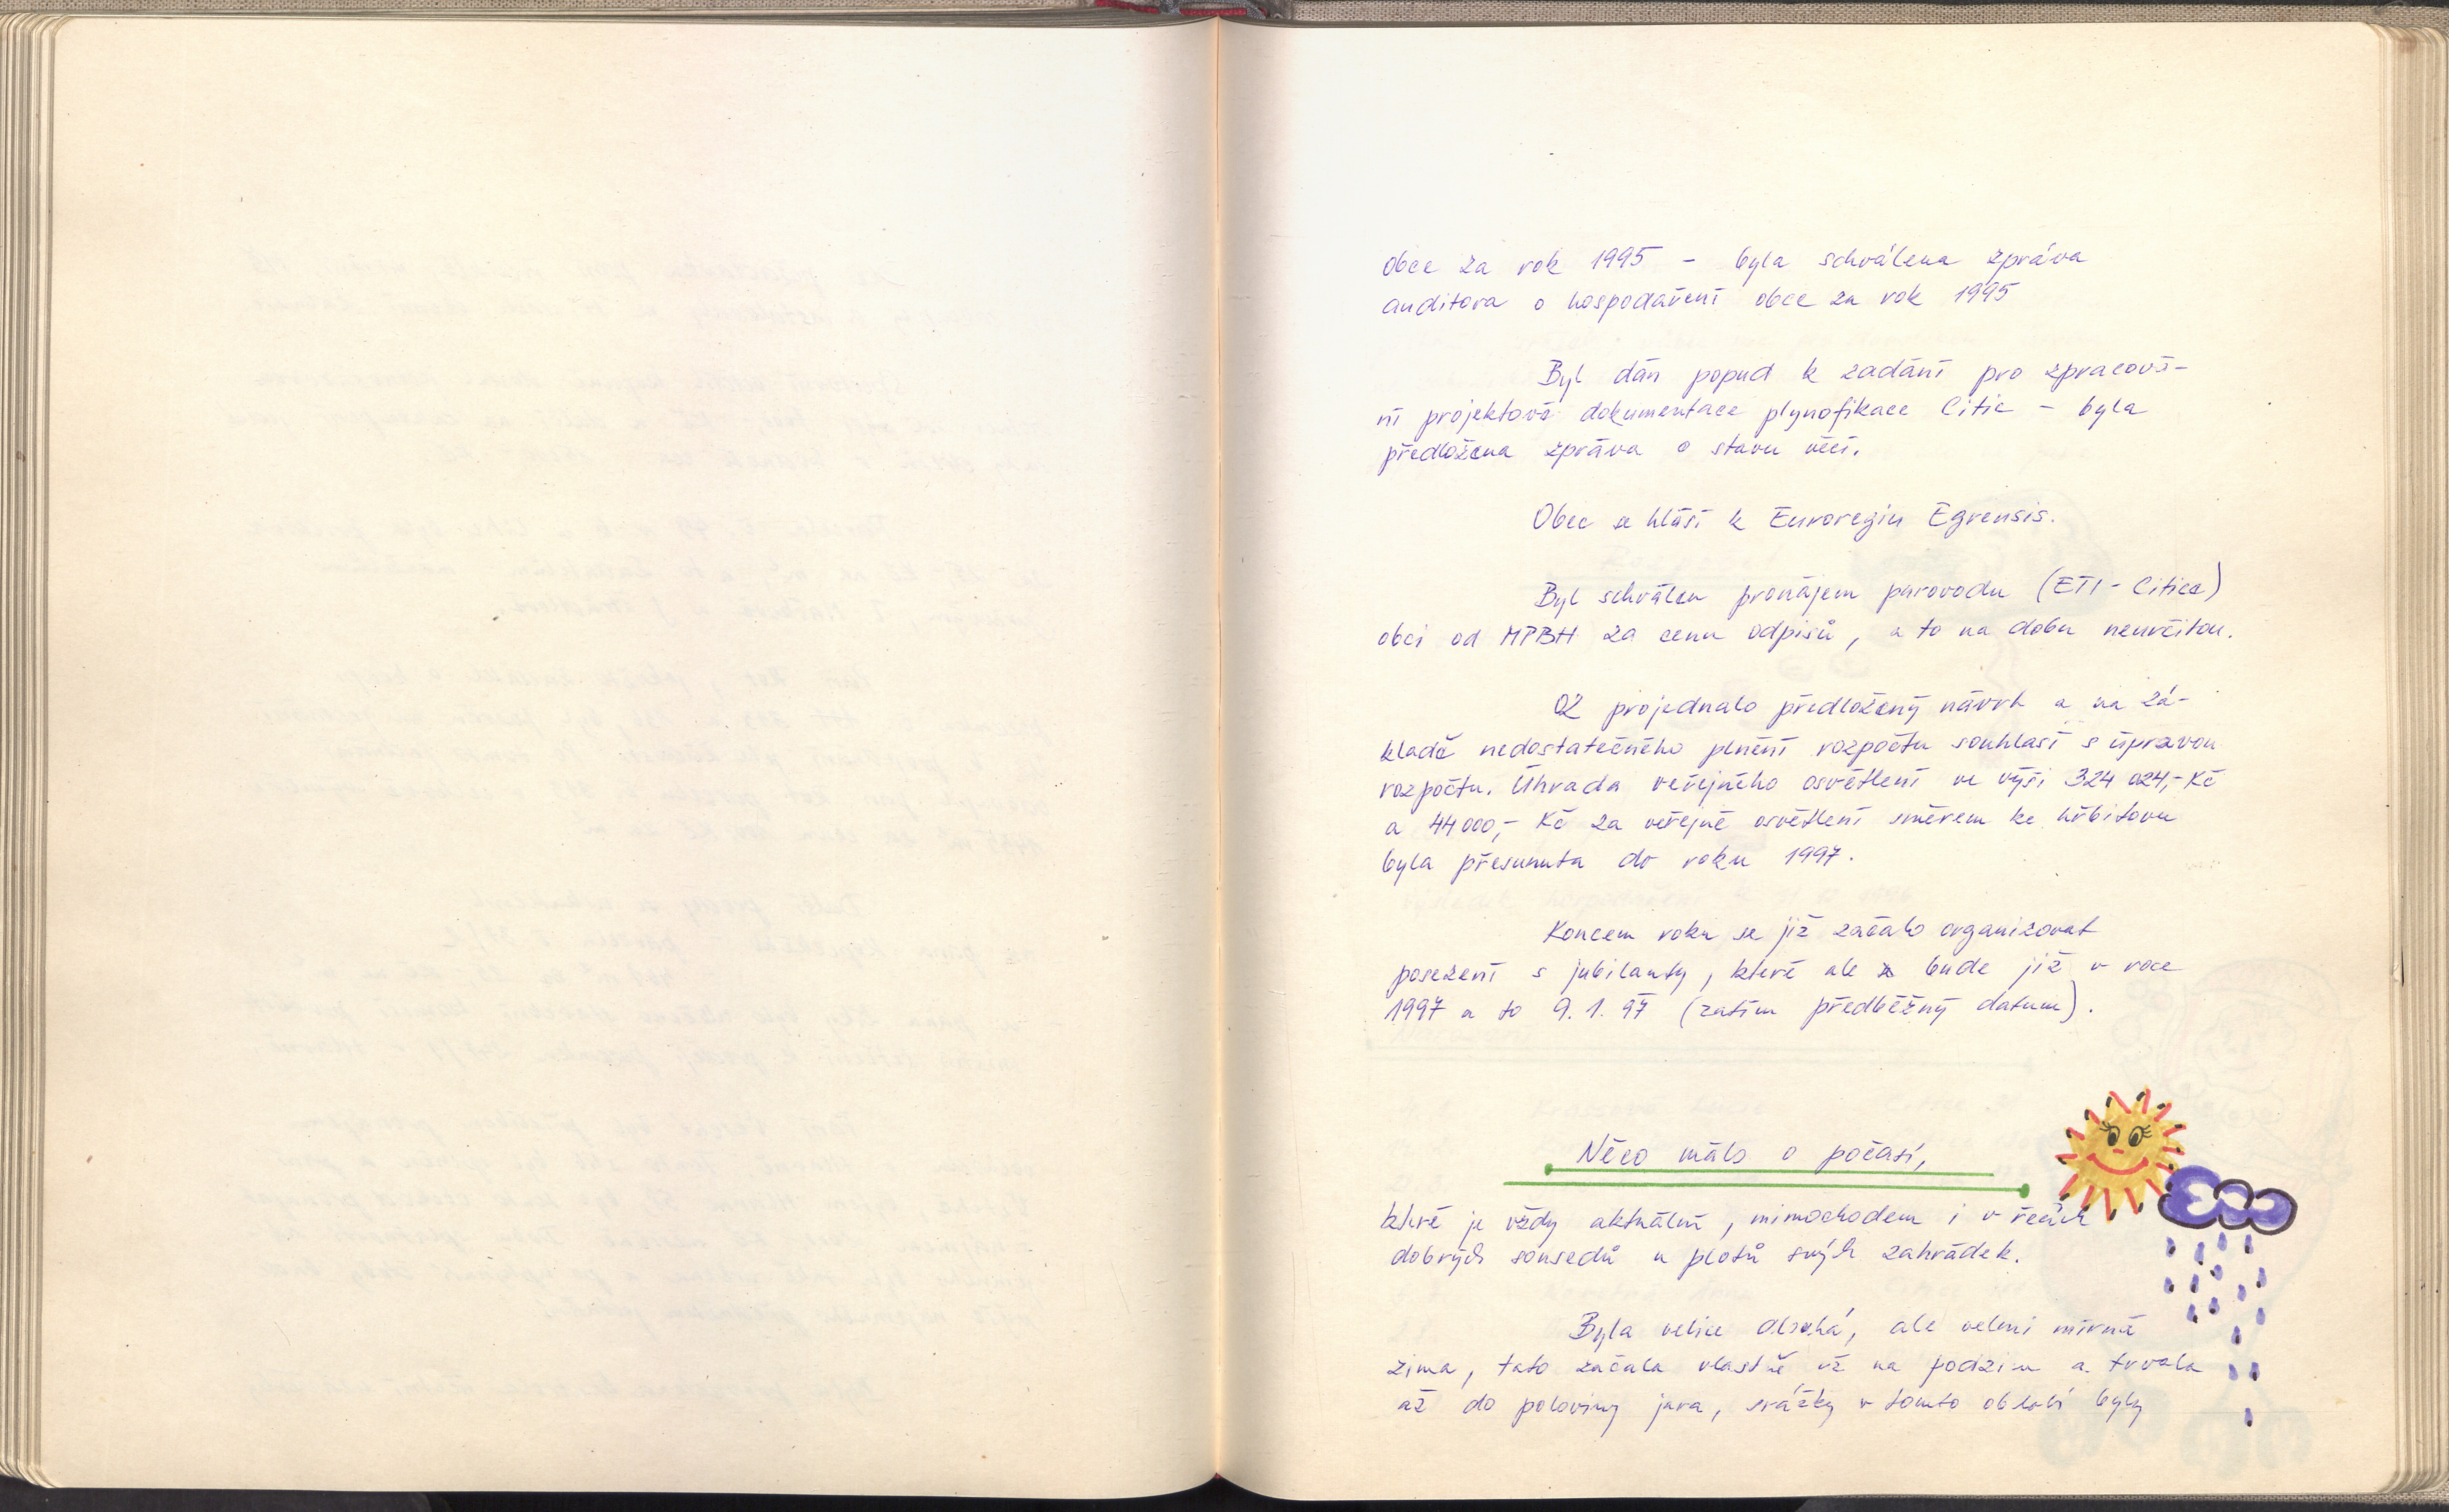 obce za rok 1995 - byla schválena zpráva
auditora o hospodaření obce za rok 1995
Byl dán popud k zadání pro zpracová-
ní projektové dokumentace plynofikace Citic - byla
předložena zpráva o stavu věcí.
Obec se hlásí k Euroregiu Egrensis.
Byl schválen pronájem parovodu (ETI - Citice)
obci od MPBH za cenu odpisů, a to na dobu neurčitou.
OZ projednalo předložený návrh a na zá-
kladě nedostatečného plnění rozpočtu souhlasí s úpravou
rozpočtu. Úhrada veřejného osvětlení ve výši 324 024,- Kč
a 44 000,- Kč za veřejné osvětlení směrem ke hřbitovu
byla přesunuta do roku 1997.
Koncem roku se již začalo organizovat
posezení s jubilanty, které ale bude již v roce
1997 a to 9. 1. 97 (zatím předběžný datum).
Něco málo o počasí,
které je vždy aktuální, mimochodem i v řečích
dobrých sousedů u plotů svých zahrádek.
Byla velice dlouhá, ale velmi mírná
zima, tato začala vlastně už na podzim a trvala
až do poloviny jara, srážky v tomto období byly